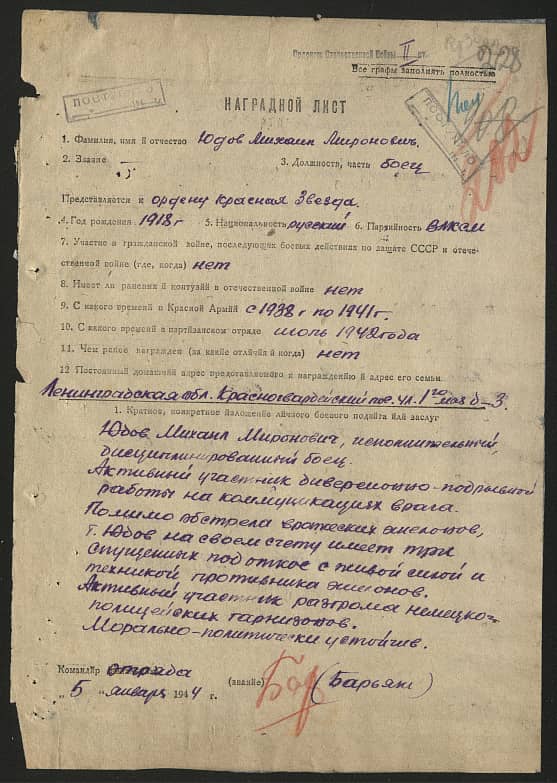 Орденом Отечественной Войны II ст.
Все графы заполнять полностью
НАГРАДНОЙ ЛИСТ
1. Фамилия, имя й отчество Юдов Михаил Миронович.
2. Звание — 3. Должность, часть боец
Представляется к ордену Красная Звезда.
4. Год рождения 1918 г 5. Национальность русский 6. Партийность ВЛКСМ
7. Участие в гражданской войне, последующих боевых действиях по защите СССР и отече-
ственной войне (где, когда) нет
8. Имеет ли ранений й контузий в отечественной войне нет
9. С какого временй в Красной Армйй с 1938 г по 1941 г.
10. С какого временй в партйзанском отряде июль 1942 года
11. Чем ранее награжден (за какйе отлйчйя й когда) нет
12 Постоянный домашнйй адрес представляемого к награжденйю й адрес его семьи
Ленинградская обл. Красногвардейский пос. ул. 1го мая д-3.
1. Краткое, конкретное йзложенйе лйчного боевого подвйга йлй заслуг
Юдов Михаил Миронович, исполнительный,
дисциплинированный боец.
Активный участник диверсионно-подрывной
работы на коммуникациях врага.
Помимо обстрела вражеских эшелонов,
т. Юдов на своем счету имеет три
спущенных под откос с живой силой и
техникой противника эшелонов.
Активный участник разгрома немецко-
полицейских гарнизонов.
Морально-политически устойчив.
Командйр отряда (званйе) (Барьяж)
„ 5 „ января 1944 г.